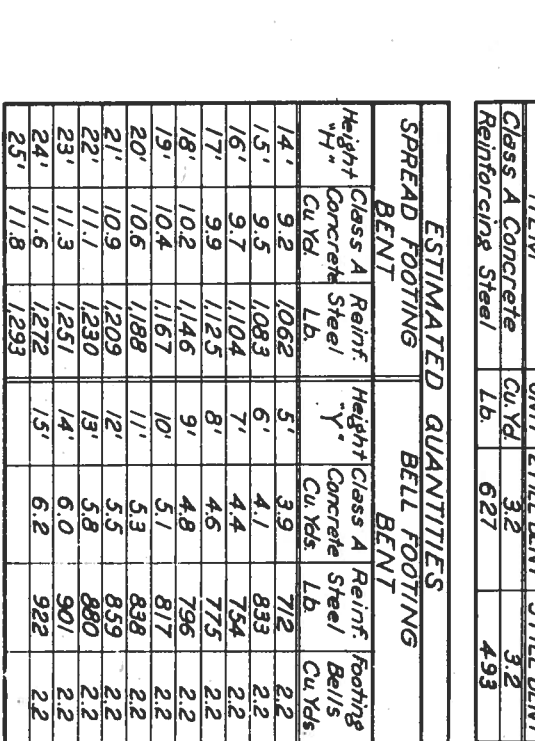 Class A Concrete Cu.Yd. 3.2 3.2
Reinforcing Steel Lb. 627 493
ESTIMATED QUANTITIES
SPREAD FOOTING BELL FOOTING
BENT BENT
Height Class A Reinf. Height Class A Reinf. Footing
"H" Concrete Steel "Y" Concrete Steel Bells
Cu.Yd. Lb. Cu.Yds. Lb. Cu.Yds.
14' 9.2 1,062 5' 3.9 712 2.2
15' 9.5 1,083 6' 4.1 833 2.2
16' 9.7 1,104 7' 4.4 754 2.2
17' 9.9 1,125 8' 4.6 775 2.2
18' 10.2 1,146 9' 4.8 796 2.2
19' 10.4 1,167 10' 5.1 817 2.2
20' 10.6 1,188 11' 5.3 838 2.2
21' 10.9 1,209 12' 5.5 859 2.2
22' 11.1 1,230 13' 5.8 880 2.2
23' 11.3 1,251 14' 6.0 901 2.2
24' 11.6 1,272 15' 6.2 922 2.2
25' 11.8 1,293